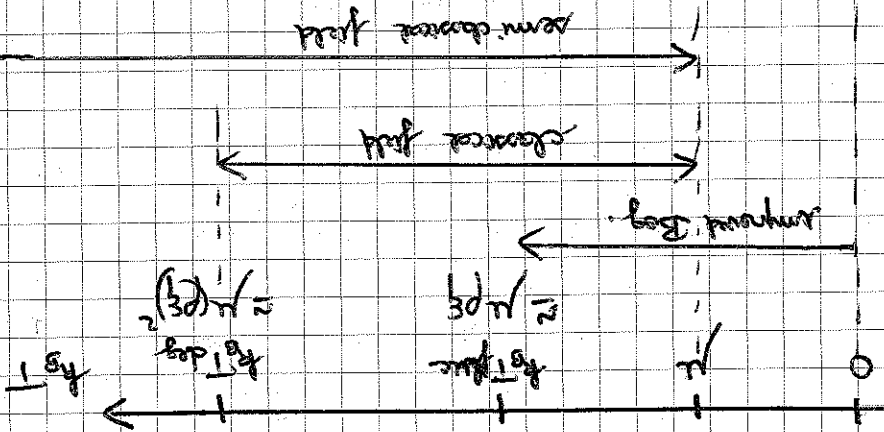 0 μ k_B T fluc k_B T deg k_B T
≈ μ ρξ ≈ μ(ρξ)²
improved Bog.
classical field
semi classical field